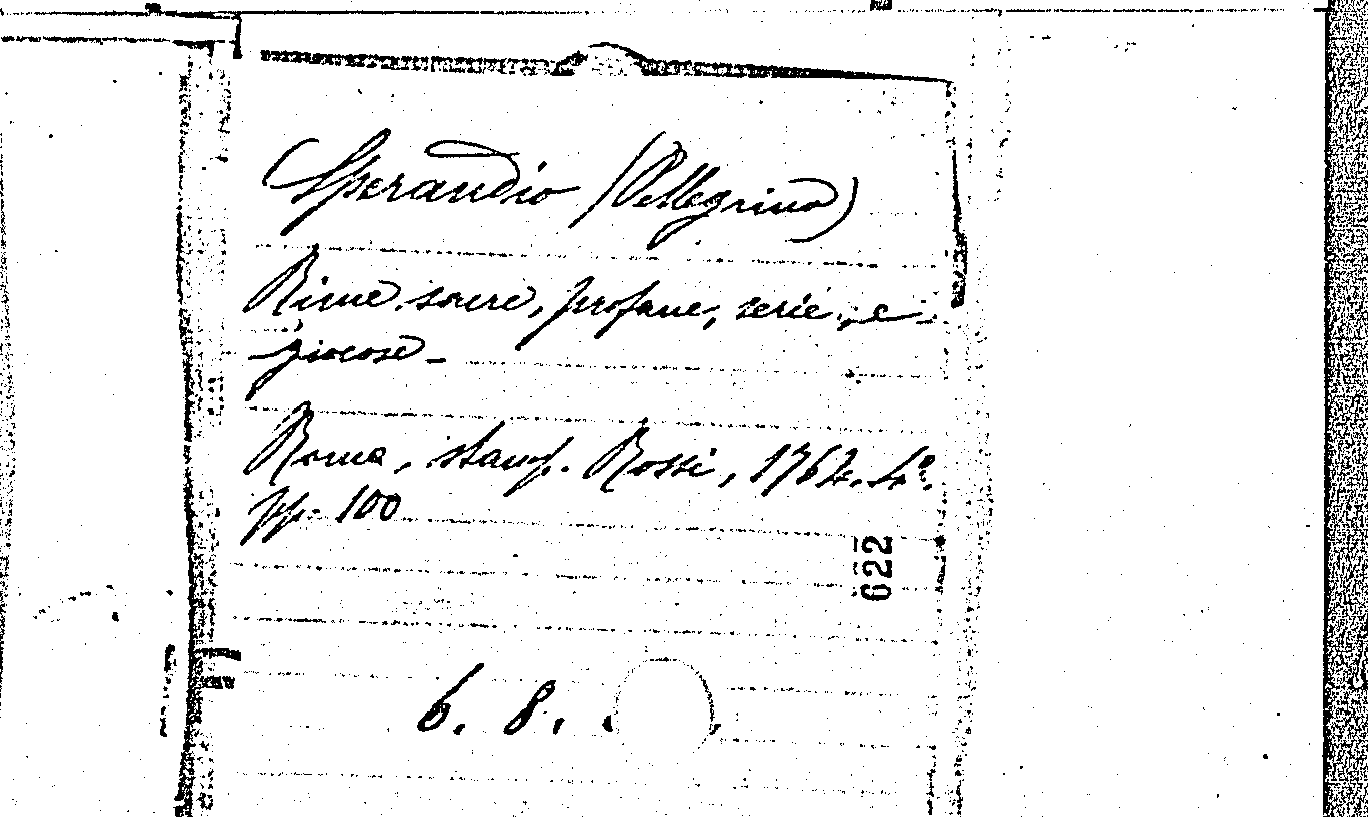 Sperandio (Pellegrino)
Rime sacre, profane, serie, e
giocose -
Roma, stamp. Rossi, 1764. 4°.
pp. 100
622
6. 8.